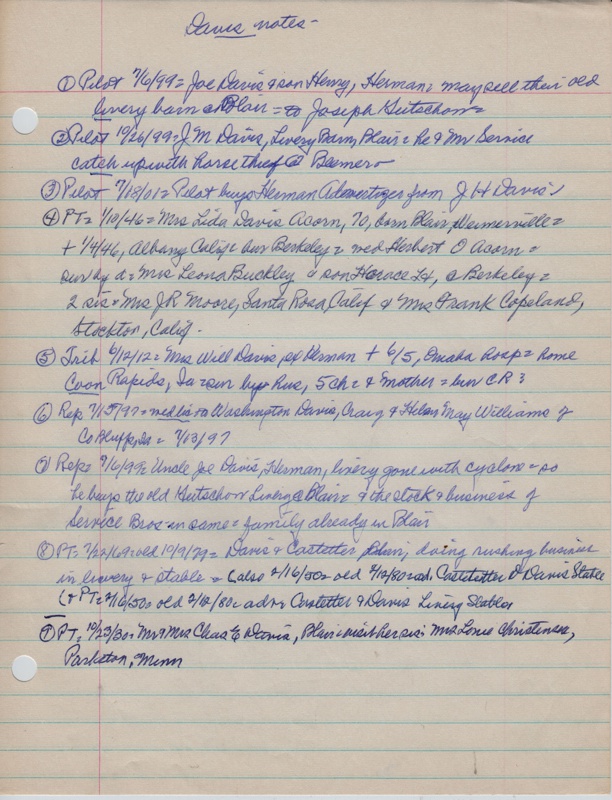 Davis notes -
① Pilot 7/6/99 = Joe Davis & son Henry, Herman = may sell their old
livery barn @ Blair = to Joseph Gutschow =
② Pilot 10/26/99 = J M Davis, Livery Barn, Blair = he & Mr Service
catch up with horse thief @ Beemer
③ Pilot 7/18/01 = Pilot buys Herman Advertizer from J H Davis
④ PT = 1/10/46 = Mrs Lida Davis Acorn, 70, born Blair,
+ 1/4/46, Albany Calif = bur Berkeley = wed Herbert O Acorn =
sur by d = Mrs Leona Buckley & son Horace @ Berkeley =
2 sis = Mrs J R Moore, Santa Rosa, Calif & Mrs Frank Copeland,
Stockton, Calif -
⑤ Trib 6/12/12 = Mrs Will Davis, Herman + 6/5, Omaha hosp = home
Coon Rapids, Ia = sur by hus, 5 ch = & mother = bur C R ?
⑥ Rep 7/15/97 = med lis to Washington Davis, Craig & Helen May Williams of
Co Bluffs, Ia = 7/13/97
⑦ Rep = 7/6/99 = Uncle Joe Davis, Herman, livery gone with cyclone = so
he buys the old Gutschow Livery @ Blair = & the stock & business of
Service Bros = in same = family already in Blair
⑧ PT = 7/22/69 = old 10/9/79 = Davis & Castetter doing rushing business
in livery & stable = (also 2/16/50 = old 2/12/80 = ad. Castetter & Davis Stable
(& PT = 2/16/50 = old 2/12/80 = adv = Castetter & Davis Livery Stables
⑨ PT = 10/23/30 = Mr & Mrs Chas E Davis, Blair = visit her sis = Mrs Christensen,
Minn